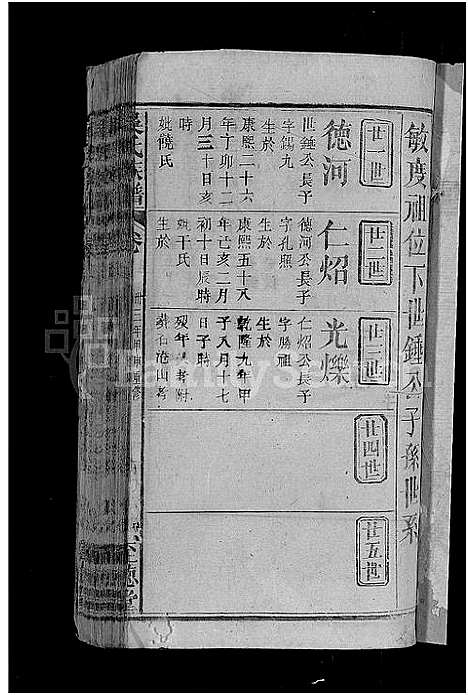 敏度祖位下世錘公子孫世系
廿一世
德河
世錘公長子
字錫九
生於
康熙二十六
年丁卯十二
月三十日亥
時
妣饒氏
廿二世
仁炤
德河公長子
字孔照
生於
康熙五十八
年己亥二月
初十日辰時
妣于氏
生於
廿三世
光爍
仁炤公長子
字勝祖
生於
乾隆九年甲
子八月十七
日子時
歿年 考附
葬石滄山考
廿四世
廿五世
吳氏族譜 卷
至德堂
FamilySearch